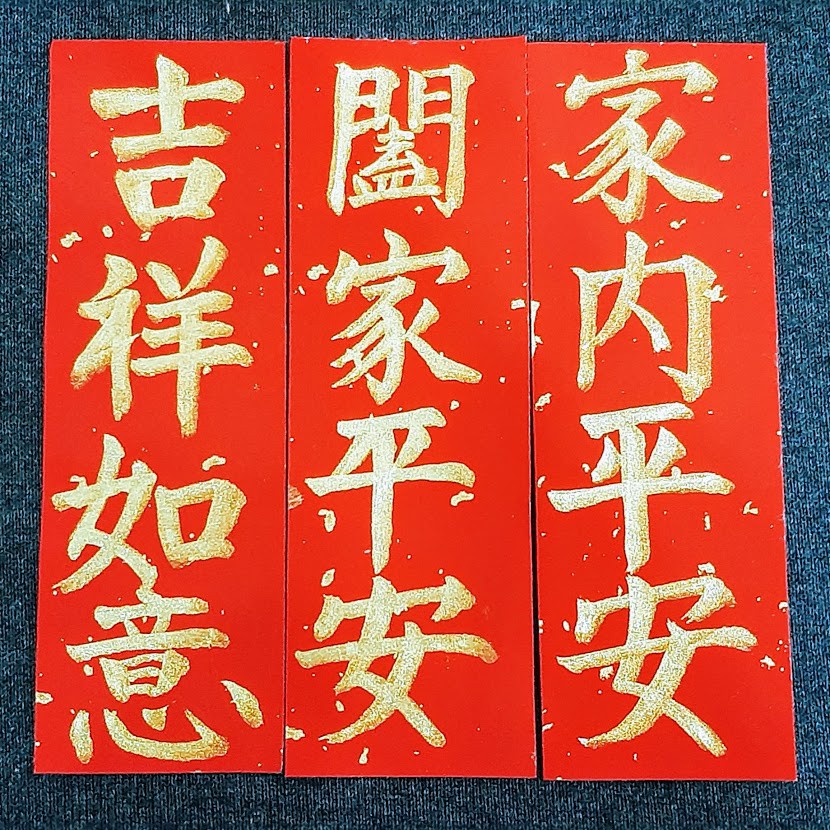 家內平安
闔家平安
吉祥如意